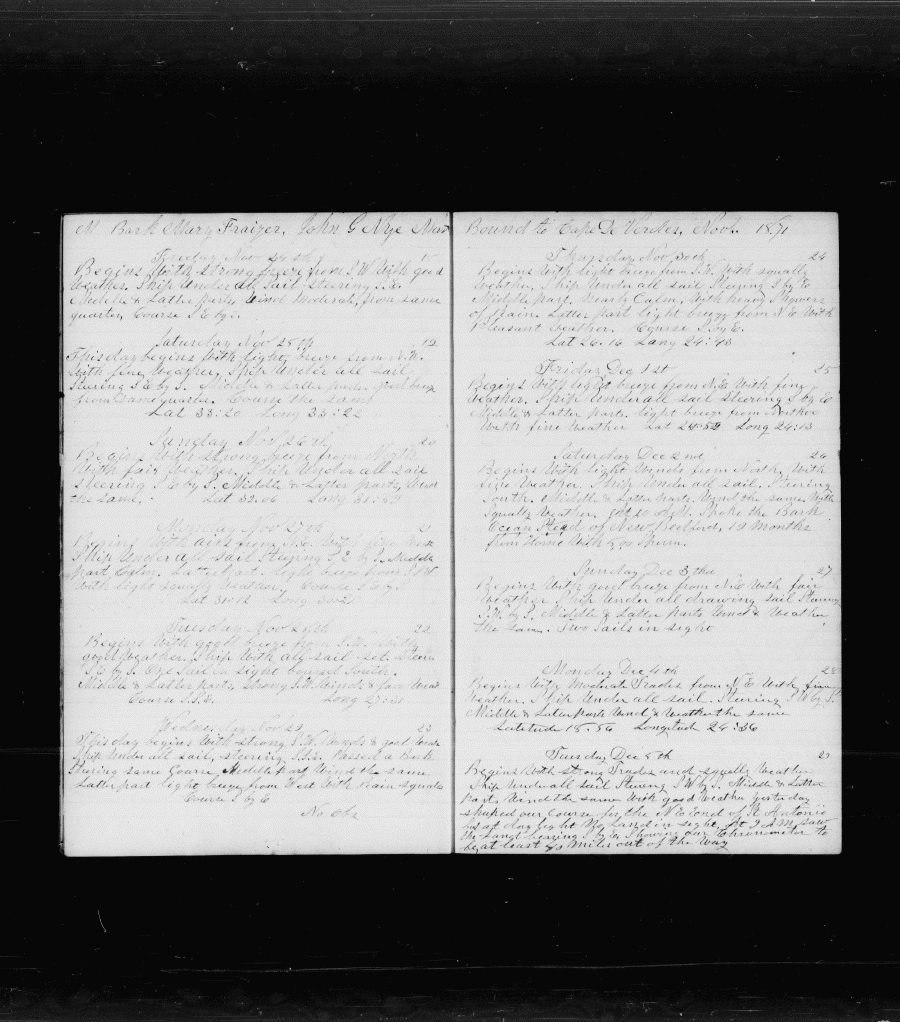 M Bark Mary Fraizer, John G Nye
Friday Nov 24th
Begins With strong breeze from S.W With good
Weather. Ship Under all Sail steering S.E.
Middle & Latter parts, Wind Moderate, from same
quarter, Course S E by S.
Saturday Nov 25th 19
This day begins With light breeze from N.W.
With fine Weather, Ship Under all sail
Steering S E by S. Middle & Latter parts, good breeze
from same quarter. Course the same
Lat 33:20 Long 33:22
Sunday Nov 26th 20
Begins With strong breeze from North
With fair Weather, Ship Under all sail
Steering S E by S. Middle & Latter parts, Wind
the same, Lat 32.06 Long
Monday Nov 27th 21
Begins With airs from N.E. With fine
Ship Under all sail Steering S E by S. Middle
Part Calm. Latter part light breeze from S W
With light squally Weather, Course
Lat 31:12 Long
Tuesday Nov 28th 22
Begins With good breeze from S.W. With
good Weather. Ship With all sail set. Steering
S E by S. One Sail in sight bound South.
Middle & Latter parts, Strong S.W. Wind & fair
Course S.S.E. Long
Wednesday Nov 29 23
This day begins With strong S.W. Winds & good
Ship Under all sail, steering S.S.E. Passed a Bark
Steering same Course. Middle Part Wind the same
Latter part light breeze from West With Rain squalls
Course S by E
No Obs
Bound to Cape De Verdes, Nov. 1871
Thursday Nov 30th 24
Begins With light breeze from S.W. With squally
Weather, Ship Under all sail, Steering S by E
Middle Part, Nearly Calm, With heavy Showers
of Rain. Latter part light breeze from N.E With
Pleasant Weather. Course S by E.
Lat 26.16 Long 24:43
Friday Dec 1st 25
Begins With light breeze from N.E With fine
Weather. Ship Under all sail steering S by E
Middle & Latter Parts. light breeze from
With fine Weather Lat Long 24:13
Saturday Dec 2nd 26
Begins With light Winds from North, With
fine Weather. Ship Under all sail. Steering
South. Middle & Latter Parts, Wind the same, With
Squally Weather, at 10 A.M. Spoke the Bark
Ocean Steed of New Bedford, 19 Months
from Home With 500 Sperm.
Sunday Dec 3 27
Begins With good breeze from N.E With fair
Weather Ship Under all drawing sail Steering
S.W. by S. Middle & Latter Parts Wind & Weather
the same. Two Sails in sight
Monday Dec 4th 28
Begins With Moderate Trades from N.E With fine
Weather. Ship Under all sail. Steering S W by S.
Middle & Latter Parts Wind & Weather the same
Latitude 18:56 Longitude 24:36
Tuesday Dec 5th 29
Begins With strong Trades and squally Weather
Ship Under all sail Steering S W by S. Middle & Latter
Parts Wind the same With good Weather yesterday
shaped our Course for the N E end of St Antonio
but at day light No Land in sight. At 9 A M saw
the Land bearing S by E Showing our Chronometer to
be at least 40 Miles out of the Way